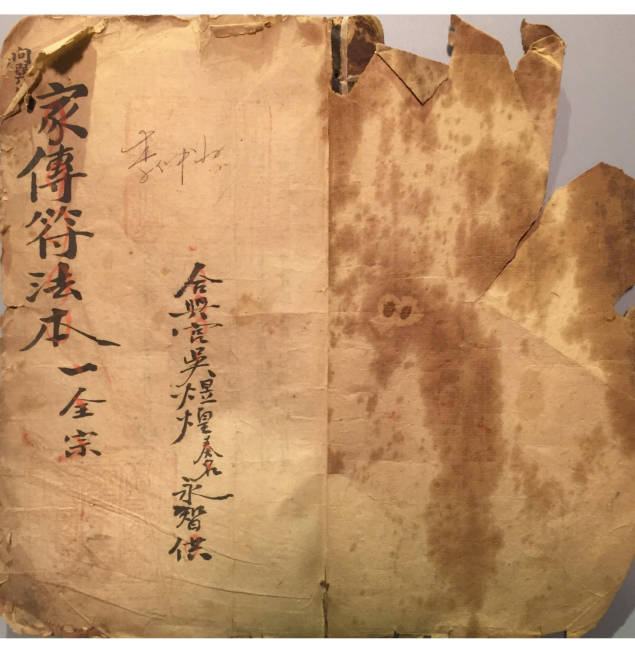 家傳符法本一全宗
合興宮吳煜煌奏名永智供